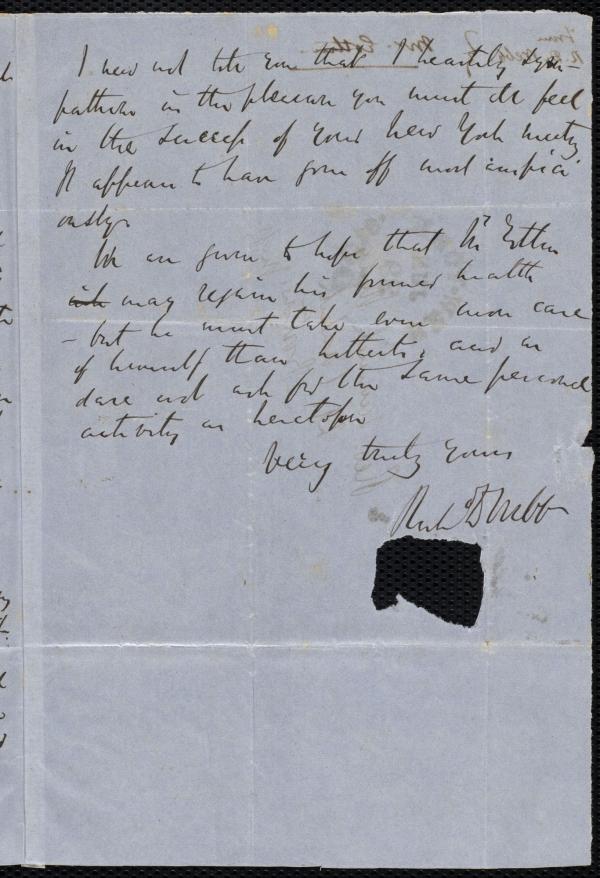 I need not tell you that I heartily sym-
pathise in the pleasure you must all feel
in the success of your New York meeting
It appears to have gone off most auspici
ously.
We are given to hope that Mr Estlin
may regain his former health
- but he must take even more care
of himself than hitherto, and we
dare not ask for the same personal
activity as heretofore
Very truly yours
Richd D Webb